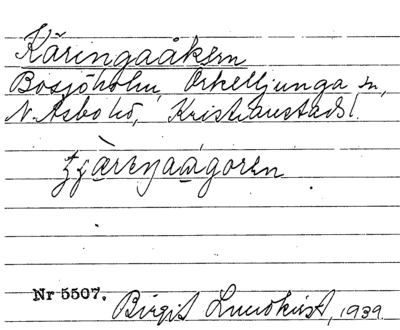 Käringaåkern
Bosjöholm, Örkelljunga sn,
N. Åsbo hd, Kristianstads l.
Nr 5507. Birgit Lundkvist, 1939